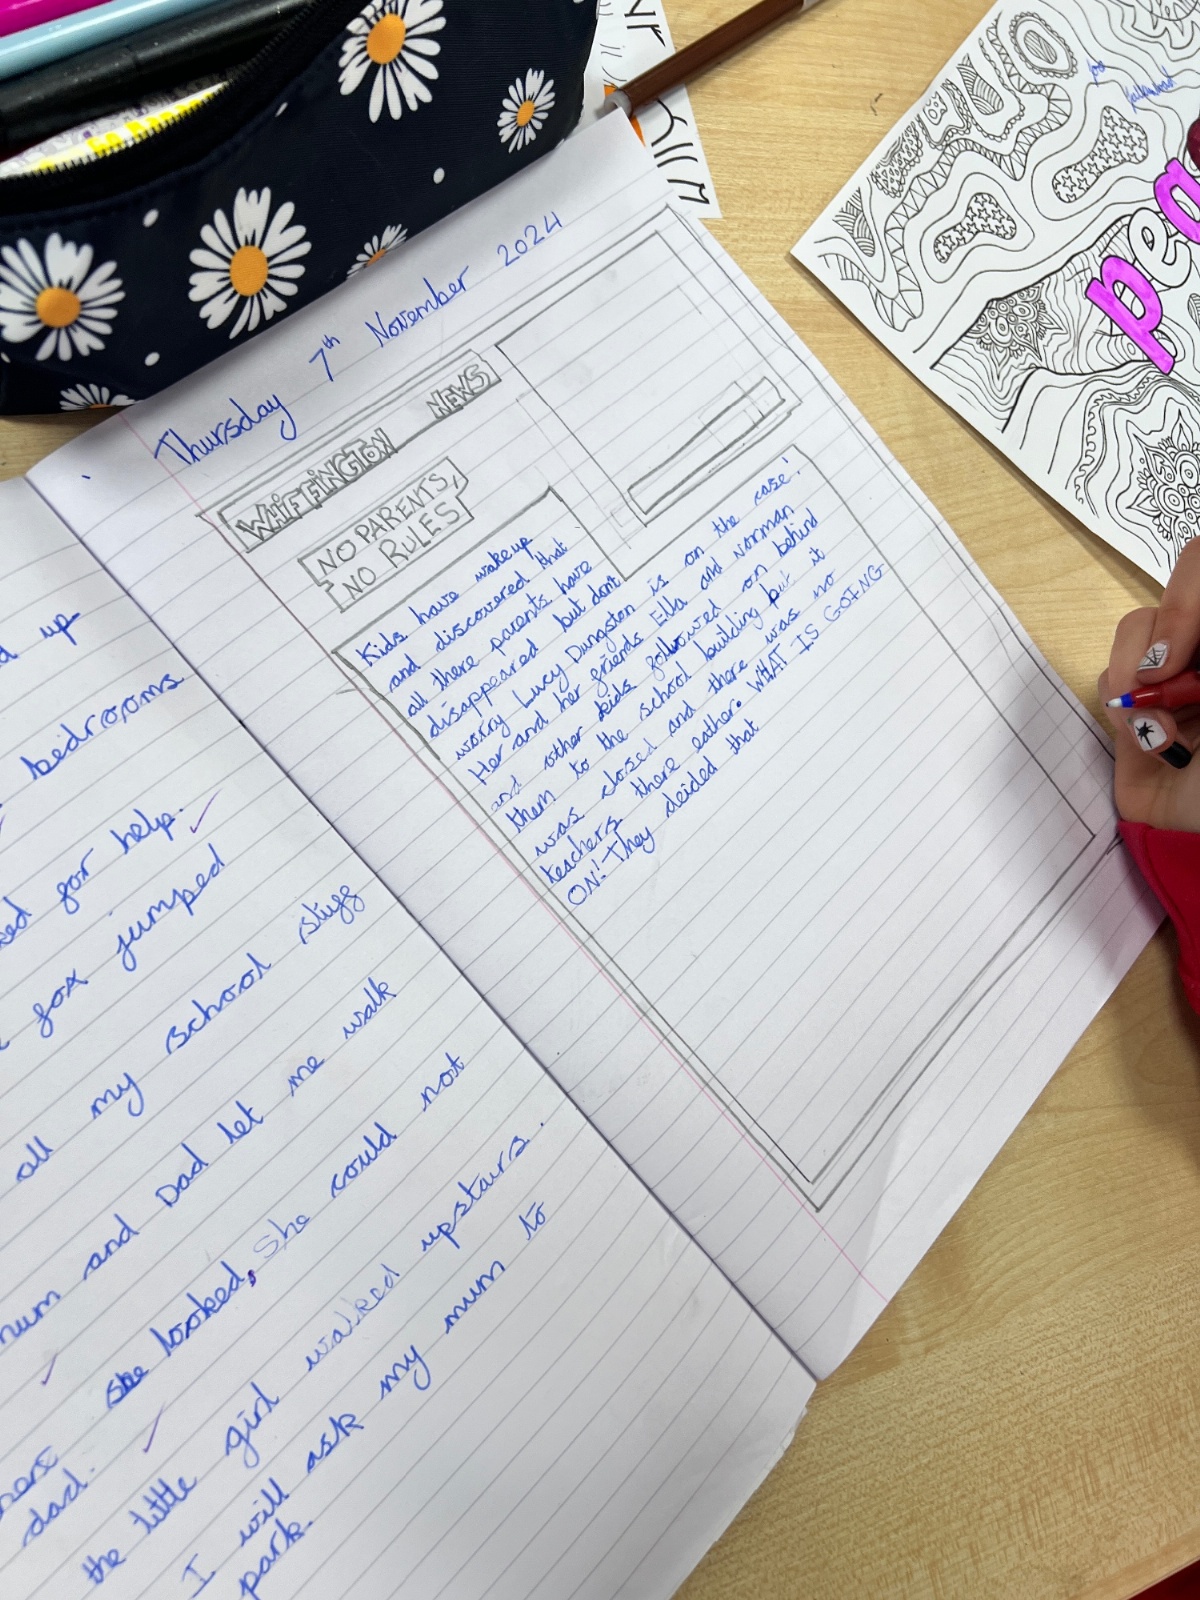 Thursday 7th November 2024
WHIFFINGTON NEWS
NO PARENTS,
NO RULES
Kids have wakeup
and discovered that
all there parents have
disappeared but dont
worry Lucy Dungston is on the case!
Her and her friends Ella and Norman
and other kids followed on behind
them to the school building but it
was closed and there was no
teachers there eather. WHAT IS GOING
ON! They deided that
up
bedrooms
for help.
fox jumped
all my school stuff
mum and Dad let me walk
she looked, she could not
dad.
the little girl walked upstairs.
I will ask my mum to
park.
for
pea